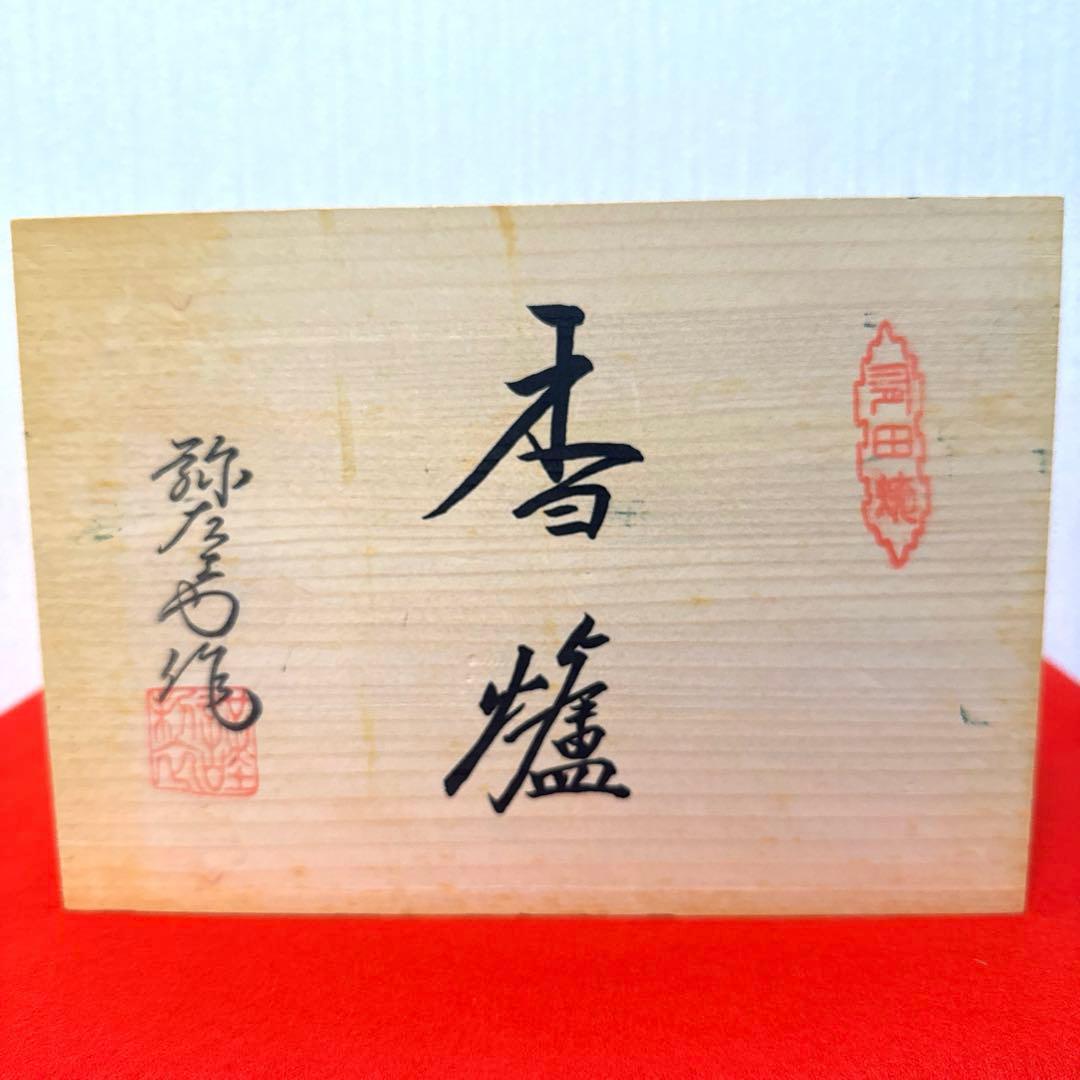 有田焼
香爐
弥左ヱ門作